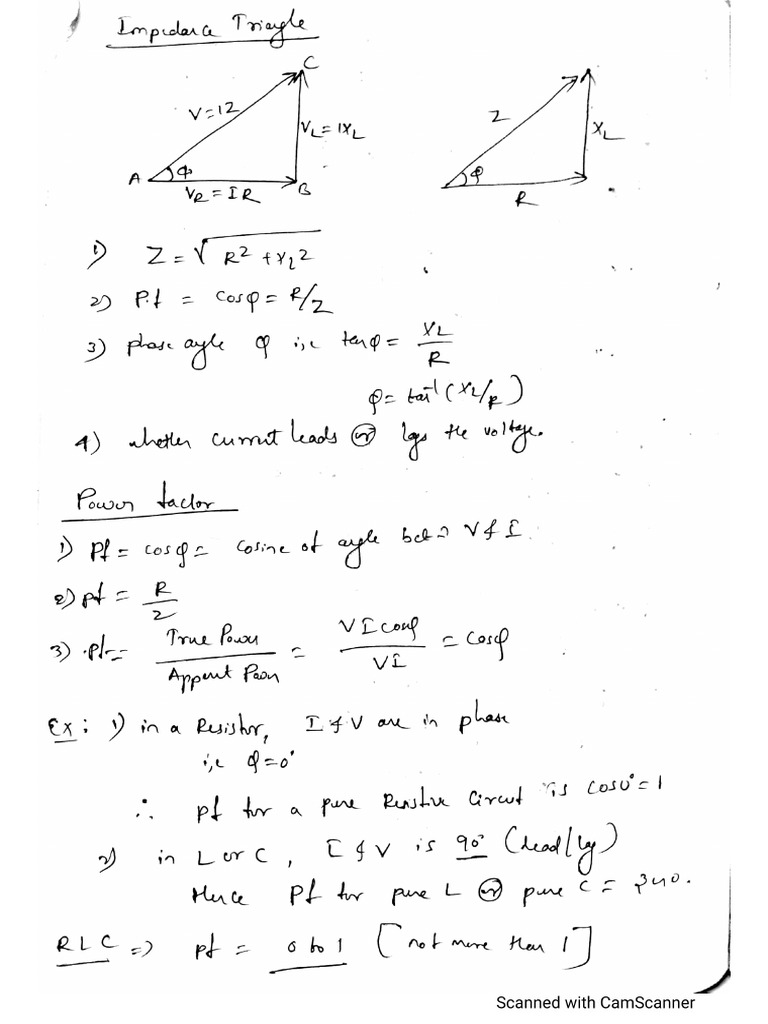 Impedance Triangle
C
V=IZ
VL=IXL
A
φ
VR=IR
B
Z
XL
φ
R
1) Z=√R²+XL²
2) P.f = cosφ = R/Z
3) phase angle φ i,e tanφ = XL/R
φ= tan⁻¹(XL/R)
4) whether current leads (or) lags the voltage.
Power factor
1) Pf = cosφ = cosine of angle betn V & I.
2) pf = R/Z
3) pf = True Power/Apparent Power = VIcosφ/VI = cosφ
Ex: 1) in a Resistor, I & V are in phase
i,e φ=0°
∴ pf for a pure Resistive Circuit is cos0°=1
2) in L or C, I & V is 90° (lead/lag)
Hence Pf for pure L (or) pure C = zero.
RLC => pf = 0 to 1 [not more than 1]
Scanned with CamScanner